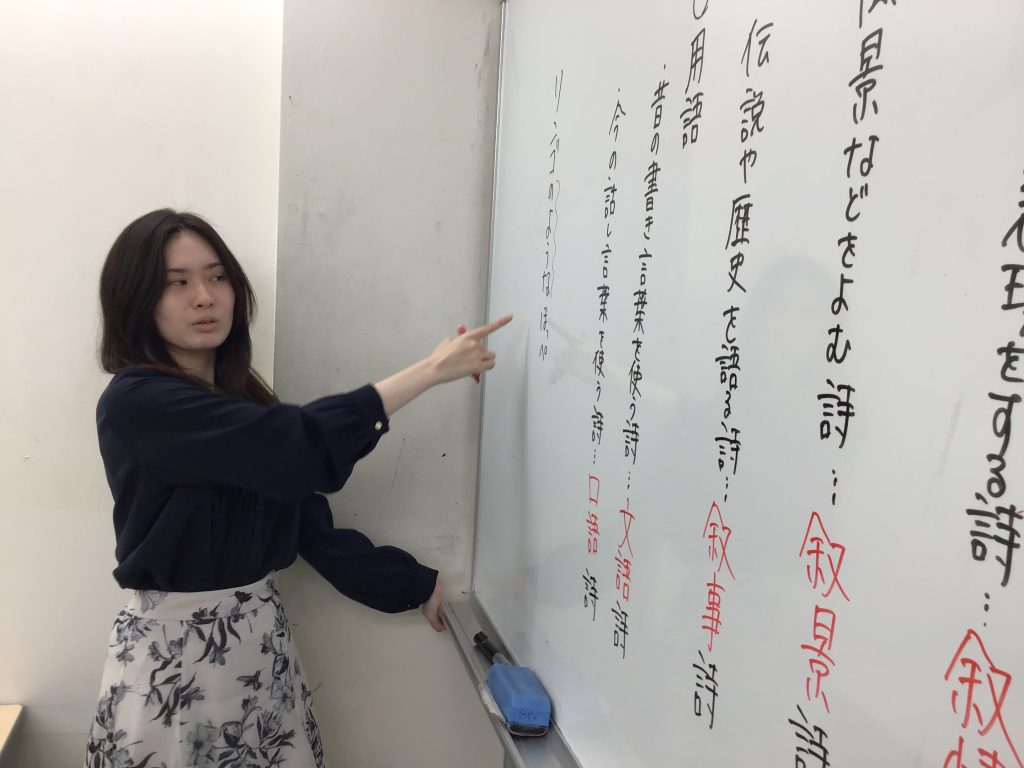 をよむ詩…叙情
景などをよむ詩…叙景詩
伝説や歴史を語る詩…叙事詩
用語
・昔の書き言葉を使う詩…文語詩
・今の話し言葉を使う詩…口語詩
リンゴのようなほっぺ